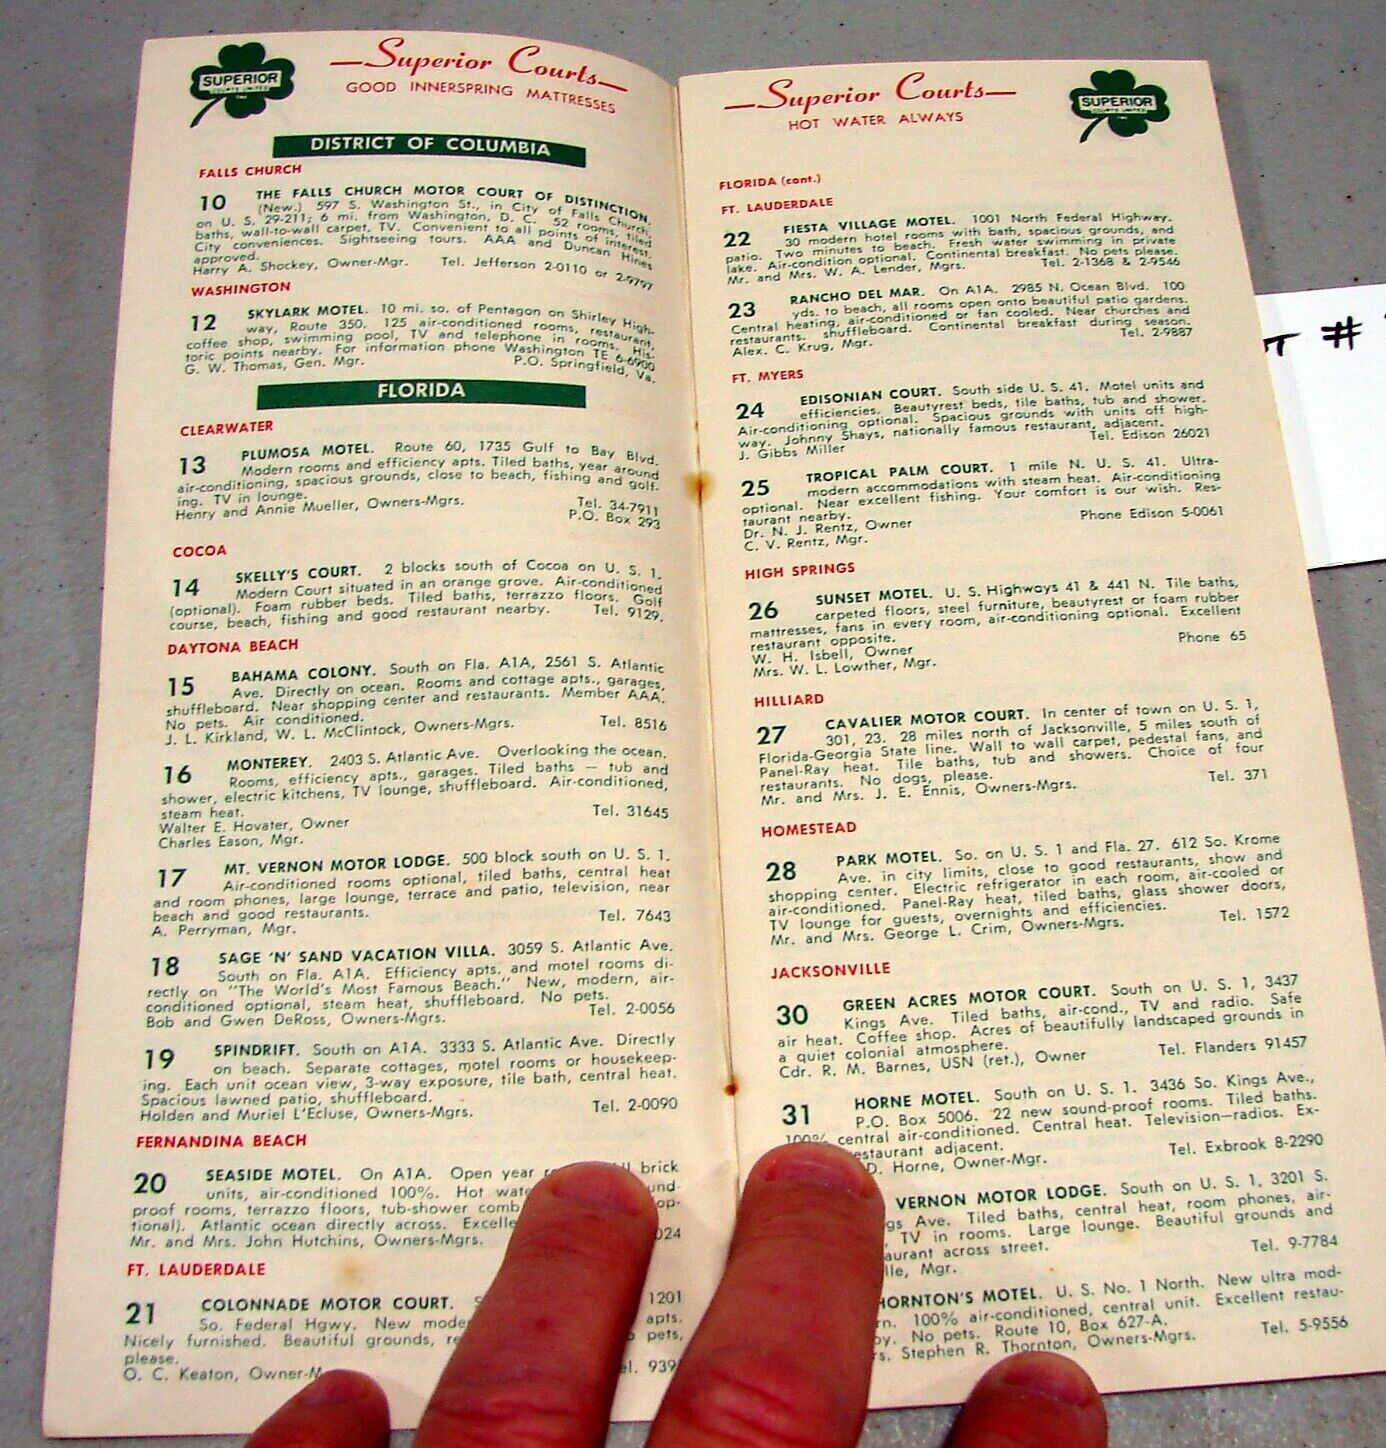 SUPERIOR
COURTS UNITED
INC.
Superior Courts
GOOD INNERSPRING MATTRESSES
DISTRICT OF COLUMBIA
FALLS CHURCH
10 THE FALLS CHURCH MOTOR COURT OF DISTINCTION.
(New.) 597 S. Washington St., in City of Falls Church,
on U. S. 29-211; 6 mi. from Washington, D. C. 52 rooms, tiled
baths, wall-to-wall carpet, TV. Convenient to all points of interest.
City conveniences. Sightseeing tours. AAA and Duncan Hines
approved.
Harry A. Shockey, Owner-Mgr. Tel. Jefferson 2-0110 or 2-9797
WASHINGTON
12 SKYLARK MOTEL. 10 mi. so. of Pentagon on Shirley High-
way, Route 350. 125 air-conditioned rooms, restaurant,
coffee shop, swimming pool, TV and telephone in rooms. His-
toric points nearby. For information phone Washington TE 6-6900
G. W. Thomas, Gen. Mgr. P.O. Springfield, Va.
FLORIDA
CLEARWATER
13 PLUMOSA MOTEL. Route 60, 1735 Gulf to Bay Blvd.
Modern rooms and efficiency apts. Tiled baths, year around
air-conditioning, spacious grounds, close to beach, fishing and golf-
ing. TV in lounge. Tel. 34-7911
Henry and Annie Mueller, Owners-Mgrs. P.O. Box 293
COCOA
14 SKELLY'S COURT. 2 blocks south of Cocoa on U. S. 1.
Modern Court situated in an orange grove. Air-conditioned
(optional). Foam rubber beds. Tiled baths, terrazzo floors. Golf
course, beach, fishing and good restaurant nearby. Tel. 9129.
DAYTONA BEACH
15 BAHAMA COLONY. South on Fla. A1A, 2561 S. Atlantic
Ave. Directly on ocean. Rooms and cottage apts., garages,
shuffleboard. Near shopping center and restaurants. Member AAA.
No pets. Air conditioned.
J. L. Kirkland, W. L. McClintock, Owners-Mgrs. Tel. 8516
16 MONTEREY. 2403 S. Atlantic Ave. Overlooking the ocean.
Rooms, efficiency apts., garages. Tiled baths — tub and
shower, electric kitchens, TV lounge, shuffleboard. Air-conditioned,
steam heat.
Walter E. Hovater, Owner Tel. 31645
Charles Eason, Mgr.
17 MT. VERNON MOTOR LODGE. 500 block south on U. S. 1.
Air-conditioned rooms optional, tiled baths, central heat
and room phones, large lounge, terrace and patio, television, near
beach and good restaurants.
A. Perryman, Mgr. Tel. 7643
18 SAGE 'N' SAND VACATION VILLA. 3059 S. Atlantic Ave.
South on Fla. A1A. Efficiency apts. and motel rooms di-
rectly on "The World's Most Famous Beach." New, modern, air-
conditioned optional, steam heat, shuffleboard. No pets.
Bob and Gwen DeRoss, Owners-Mgrs. Tel. 2-0056
19 SPINDRIFT. South on A1A. 3333 S. Atlantic Ave. Directly
on beach. Separate cottages, motel rooms or housekeep-
ing. Each unit ocean view, 3-way exposure, tile bath, central heat.
Spacious lawned patio, shuffleboard.
Holden and Muriel L'Ecluse, Owners-Mgrs. Tel. 2-0090
FERNANDINA BEACH
20 SEASIDE MOTEL. On A1A. Open year brick
units, air-conditioned 100%. Hot
proof rooms, terrazzo floors, tub-shower
tional). Atlantic ocean directly across.
Mr. and Mrs. John Hutchins, Owners-Mgrs.
FT. LAUDERDALE
21 COLONNADE MOTOR COURT. 1201
So. Federal Hgwy. New apts.
Nicely furnished. Beautiful grounds, pets,
please.
O. C. Keaton,
Superior Courts
HOT WATER ALWAYS
SUPERIOR
COURTS UNITED
INC.
FLORIDA (cont.)
FT. LAUDERDALE
22 FIESTA VILLAGE MOTEL. 1001 North Federal Highway.
30 modern hotel rooms with bath, spacious grounds, and
patio. Two minutes to beach. Fresh water swimming in private
lake. Air-condition optional. Continental breakfast. No pets please.
Mr. and Mrs. W. A. Lender, Mgrs. Tel. 2-1368 & 2-9546
23 RANCHO DEL MAR. On A1A. 2985 N. Ocean Blvd. 100
yds. to beach, all rooms open onto beautiful patio gardens.
Central heating, air-conditioned or fan cooled. Near churches and
restaurants. shuffleboard. Continental breakfast during season.
Alex. C. Krug, Mgr. Tel. 2-9887
FT. MYERS
24 EDISONIAN COURT. South side U. S. 41. Motel units and
efficiencies. Beautyrest beds, tile baths, tub and shower.
Air-conditioning optional. Spacious grounds with units off high-
way. Johnny Shays, nationally famous restaurant, adjacent.
J. Gibbs Miller Tel. Edison 26021
25 TROPICAL PALM COURT. 1 mile N. U. S. 41. Ultra-
modern accommodations with steam heat. Air-conditioning
optional. Near excellent fishing. Your comfort is our wish. Res-
taurant nearby.
Dr. N. J. Rentz, Owner Phone Edison 5-0061
C. V. Rentz, Mgr.
HIGH SPRINGS
26 SUNSET MOTEL. U. S. Highways 41 & 441 N. Tile baths,
carpeted floors, steel furniture, beautyrest or foam rubber
mattresses, fans in every room, air-conditioning optional. Excellent
restaurant opposite.
W. H. Isbell, Owner Phone 65
Mrs. W. L. Lowther, Mgr.
HILLIARD
27 CAVALIER MOTOR COURT. In center of town on U. S. 1,
301, 23. 28 miles north of Jacksonville, 5 miles south of
Florida-Georgia State line. Wall to wall carpet, pedestal fans, and
Panel-Ray heat. Tile baths, tub and showers. Choice of four
restaurants. No dogs, please.
Mr. and Mrs. J. E. Ennis, Owners-Mgrs. Tel. 371
HOMESTEAD
28 PARK MOTEL. So. on U. S. 1 and Fla. 27. 612 So. Krome
Ave. in city limits, close to good restaurants, show and
shopping center. Electric refrigerator in each room, air-cooled or
air-conditioned. Panel-Ray heat, tiled baths, glass shower doors,
TV lounge for guests, overnights and efficiencies.
Mr. and Mrs. George L. Crim, Owners-Mgrs. Tel. 1572
JACKSONVILLE
30 GREEN ACRES MOTOR COURT. South on U. S. 1, 3437
Kings Ave. Tiled baths, air-cond., TV and radio. Safe
air heat. Coffee shop. Acres of beautifully landscaped grounds in
a quiet colonial atmosphere.
Cdr. R. M. Barnes, USN (ret.), Owner Tel. Flanders 91457
31 HORNE MOTEL. South on U. S. 1. 3436 So. Kings Ave.,
P.O. Box 5006. 22 new sound-proof rooms. Tiled baths.
100% central air-conditioned. Central heat. Television—radios. Ex-
restaurant adjacent.
D. Horne, Owner-Mgr. Tel. Exbrook 8-2290
VERNON MOTOR LODGE. South on U. S. 1, 3201 S.
Ave. Tiled baths, central heat, room phones, air-
TV in rooms. Large lounge. Beautiful grounds and
across street.
Mgr. Tel. 9-7784
THORNTON'S MOTEL. U. S. No. 1 North. New ultra mod-
100% air-conditioned, central unit. Excellent restau-
No pets. Route 10, Box 627-A.
Stephen R. Thornton, Owners-Mgrs. Tel. 5-9556
#